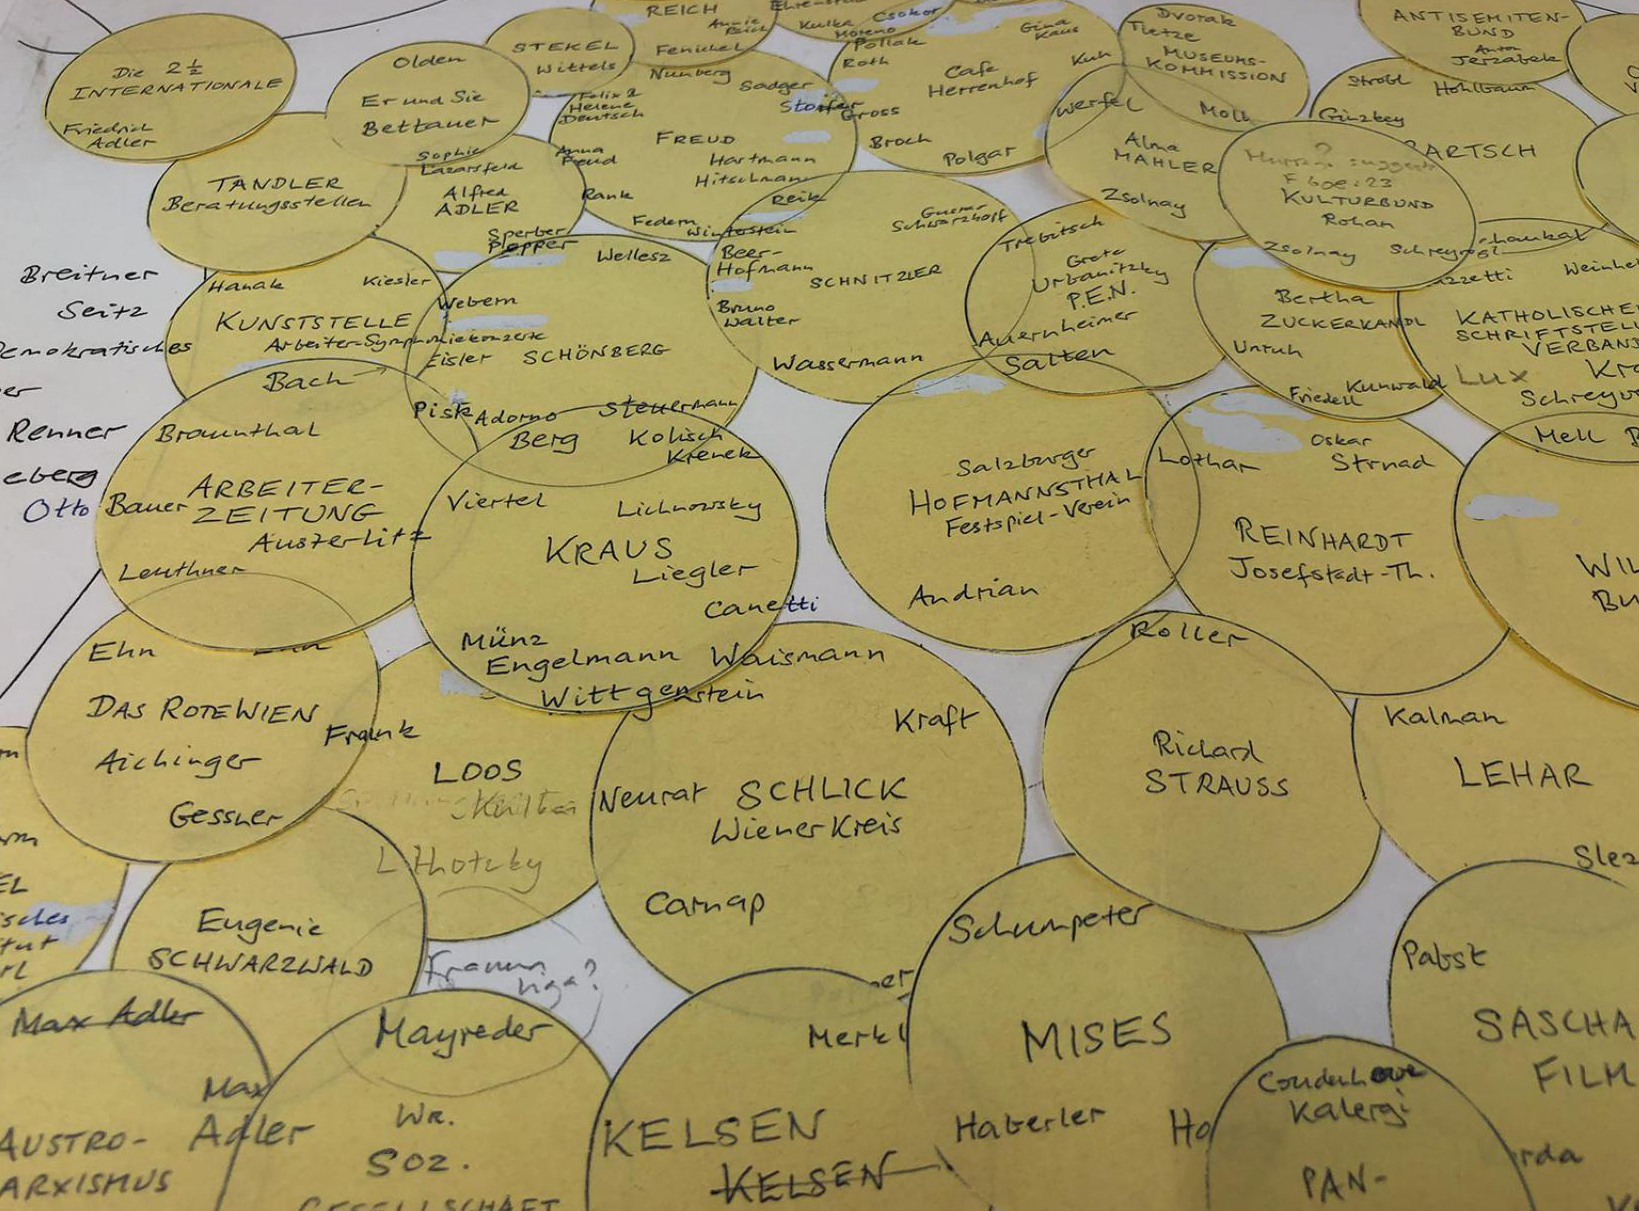 REICH
Annie
Reich
Fenichel
STEKEL
Wittels
Kulka
Csokor
Moreno
Pollak
Roth
Gina
Kaus
Kuh
Cafe
Herrenhof
Gross
Broch
Polgar
Dvorak
Tietze
MUSEUMS-
KOMMISSION
Moll
ANTISEMITEN-
BUND
Anton
Jerzabek
Die 2 ½
INTERNATIONALE
Friedrich
Adler
Olden
Er und Sie
Bettauer
Nunberg
Sadger
Storfer
Felix &
Helene
Deutsch
FREUD
Anna
Freud
Hartmann
Hitschmann
Rank
Reik
Federn
Winterstein
Werfel
Alma
MAHLER
Zsolnay
Strobl
Hohlbaum
Ginzkey
BARTSCH
?
KULTURBUND
Rohan
Zsolnay
Schreyvogl
Schaukal
TANDLER
Beratungsstellen
Sophie
Lazarsfeld
Alfred
ADLER
Sperber
Popper
Gustav
Schwarzkopf
Beer-
Hofmann
SCHNITZLER
Bruno
Walter
Wassermann
Trebitsch
Grete
Urbanitzky
P.E.N.
Auernheimer
Salten
Bertha
ZUCKERKANDL
Unruh
Friedell
Kunwald
KATHOLISCHE
SCHRIFTSTELL
VERBAND
Lux
Kra
Schreyvo
Breitner
Seitz
Demokratisches
er
Renner
eberg
Otto Bauer
Hanak
Kiesler
KUNSTSTELLE
Arbeiter-Symphoniekonzerte
Bach
Wellesz
Webern
Eisler
SCHÖNBERG
Pisk
Adorno
Steuermann
Berg
Kolisch
Krenek
Braunthal
ARBEITER-
ZEITUNG
Austerlitz
Leuthner
Viertel
Lichnowsky
KRAUS
Liegler
Canetti
Münz
Engelmann
Waismann
Wittgenstein
Salzburger
HOFMANNSTHAL
Festspiel-Verein
Andrian
Lothar
Oskar
Strnad
REINHARDT
Josefstadt-Th.
Mell
B
WIL
BU
Roller
Ehn
DAS ROTE WIEN
Frank
Aichinger
Gessner
LOOS
Lihotzky
Kraft
Neurat
SCHLICK
Wiener Kreis
Carnap
Richard
STRAUSS
Kalman
LEHAR
Slez
Eugenie
SCHWARZWALD
Frauen
liga?
Schumpeter
MISES
Haberler
Ho
Pabst
SASCHA
FILM
Max Adler
Max
Adler
AUSTRO-
MARXISMUS
Mayreder
WR.
SOZ.
GESELLSCHAFT
Merkl
KELSEN
KELSEN
Coudenhove
Kalergi
PAN-